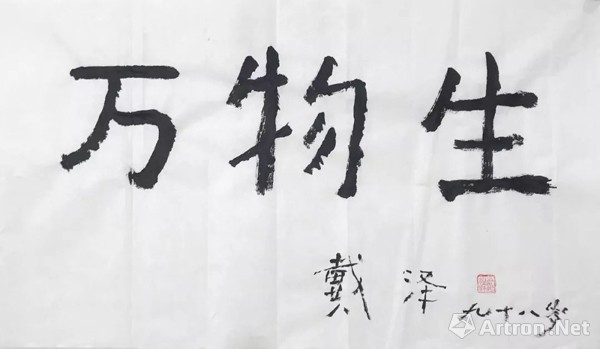 万物生
戴泽
九十八岁
Artron.Net